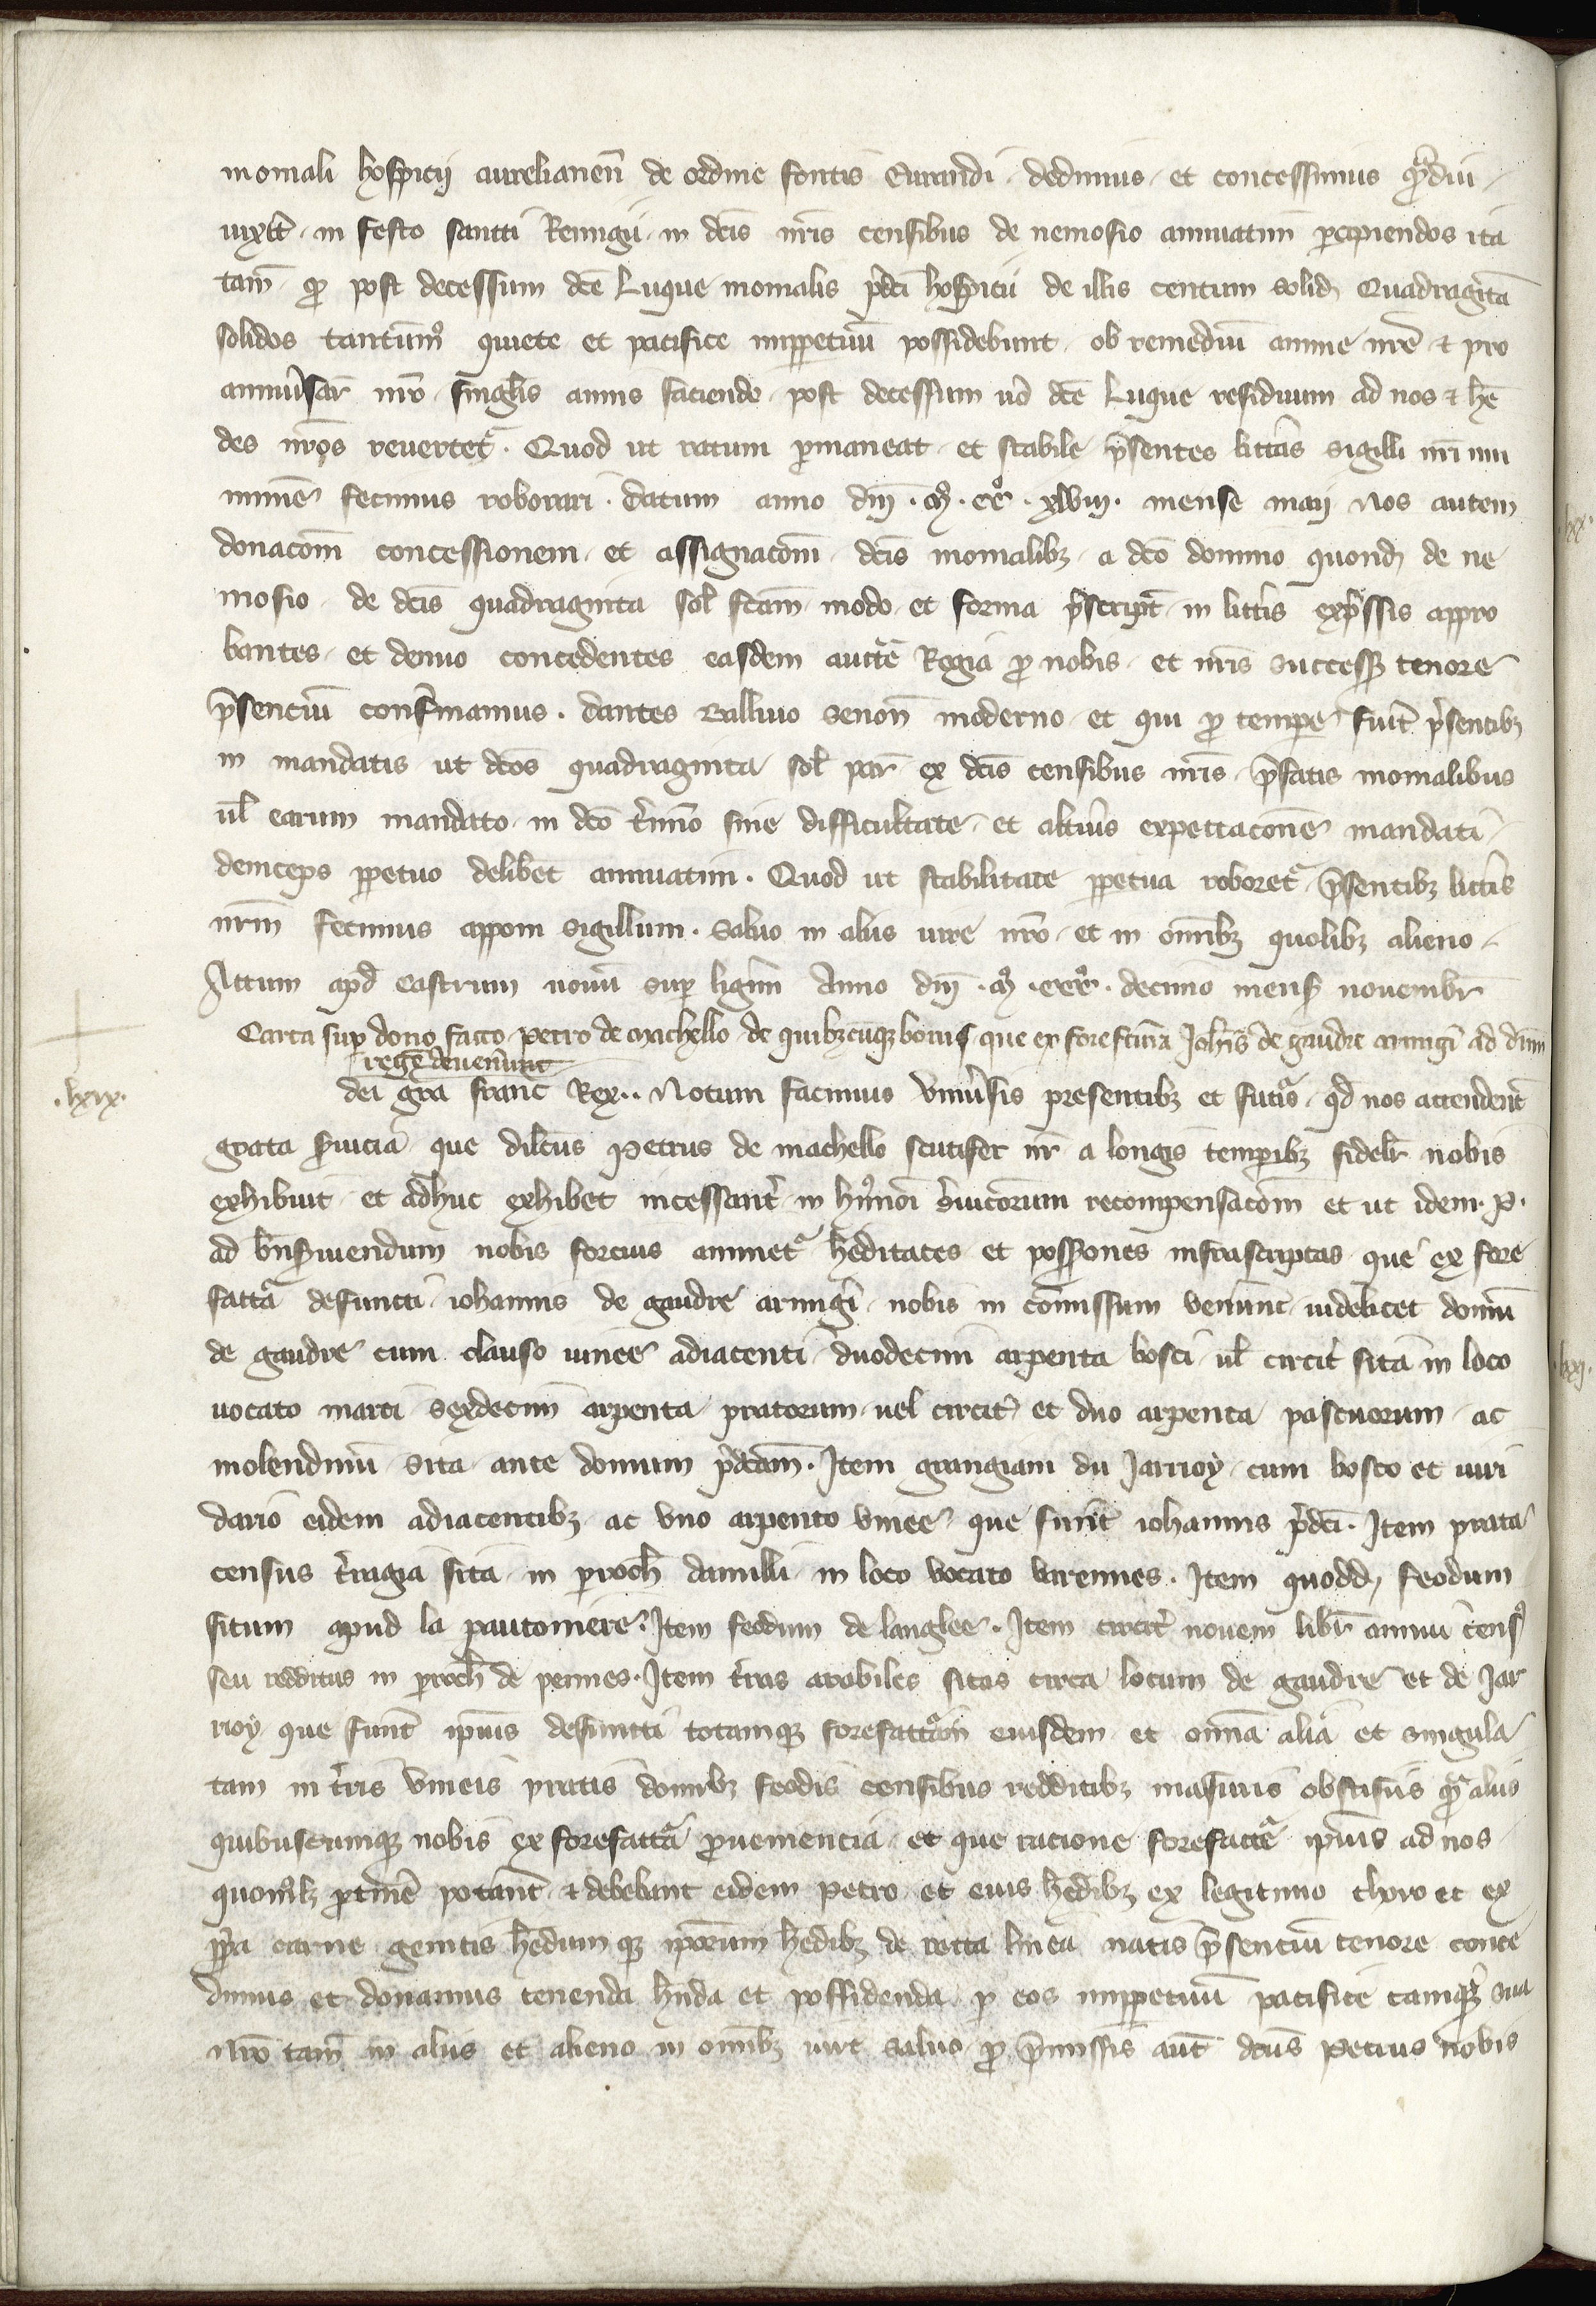 moniali hospicij aurelianen̄ de ordine fontis Eurandi dedimus et concessimus qͣ̄diu
uixit in festo sancti Remigii in dc̄is nr̄is censibus de nemosio annuatim percipiendos ita
tam̄ qͦ post decessum dc̄e Luque moniales p̄dc̄i hospicii de illis centum solid Quadragīta
solidos tantumͦ quiete et pacifice imppetuū possidebunt ob remediū anime nr̄e ⁊ pro
anniu̾sar̄ nr̄o singlis annis faciendo post decessum uo̾ dc̄e Luque residuum ad nos ⁊ he̾
des nr̄os reuertetᷣ. Quod ut ratum p̱maneat et stabile p̄sentes litt̾as sigilli nr̄i mu
nimie̾ fecimus roborari. datum anno dn̄i .mͦ. ccͦ. xlviij. mense maij Nos autem
donac̄om̄ concessionem et assignac̄om̄ dc̄is monialibꝫ a dc̄o domino quond de ne
mosio de dc̄is quadraginta sol̄ fc̄am modo et forma p̄script̄ in litt̾is exp̄ssis appro
bantes et denuo concedentes easdem auct̄e Regia ꝓ nobis et nr̄is success tenore
p̄senciū confirmamus. dantes Balliuo senon̄ moderno et qui ꝓ tempe̱ fu̾it p̄sentibꝫ
in mandatis ut dc̄os quadraginta sol̄ par̄ ex dc̄is censibus nr̄is p̄fatis monialibus
ul̄ earum mandato in dc̄o t̾mino sine difficultate et alt̾ius expectac̄one mandati
deinceps p̱petuo delib̾et annuatim. Quod ut stabilitate p̱petua roboretᷣ p̄sentibꝫ litt̾is
nr̄m fecimus apponi sigillum. Saluo in aliis iure nr̄o et in om̄ibꝫ quolibꝫ alieno.
Actum apd̄ castrum nouū sup ligim Anno dn̄i .mͦ. cccͦ. decimo mens nouembr̄
Carta sup dono facto Petro de machello de quibꝫcūqꝫ bonis que ex forefc̄ura Joh̄is de gaudre armig̾i ad dn̄m
regē deuen̾unt
.lxix.
dei gr̄a franc̄ Rex.. Notum facimus vniu̾sis presentibꝫ et futᷣis qd̄ nos attendent̾
grata s̾uicia que dil̄cus Petrus de machello scutifer nr̄ a longis temp̱ibꝫ fidelr̄ nobis
exhibuit et adhuc exhibet incessant̾ in hꝰmōi s̾uicorum recompensac̄om et ut idem .P.
ad bn̄s̾uiendum nobis forcius animetᷣ h̾editates et poss̄ones infrascriptas que ex fore
factᷣa defuncti iohannis de gaudre armig̾i nobis in co̅missum ven̾unt uidelicet domū
de gaudre cum clauso uinee adiacenti duodecim arpenta bosci ul̄ circit̾ sita in loco
uocato marci sexdecim arpenta pratorum uel circit̾ et duo arpenta pascuorum ac
molendinū sita ante domum p̄dc̄am. Item grangiam du Jarrioy cum bosco et uiri
dario eidem adiacentibꝫ ac vno arpento vinee que fu̾nt iohannis p̄dc̄i. Item prata
census t̾ragia sita in p̱roch̄ damilli in loco vocato varennes. Item quodd feodum
situm apud la pautoniere. Item feodum de langlee. Item circit̾ nouem libr̄ annui censꝰ
seu redditus in p̱roch̄ de pennes. Item t̾ras arabiles sitas circa locum de gaudre et de Jar
rioy que fu̾nt ip̄ius defuncti totamqꝫ forefactᷣam eiusdem et om̄ia alia et singula
tam in t̾ris vineis pratis domibꝫ feodis censibus redditibꝫ masuris obscisiis qͣ̄ aliis
quibuscumqꝫ nobis ex forefactᷣa ꝓueniencia et que racione forefactᷣe ip̄ius ad nos
quomͦlꝫ p̱tine̾ pot̾ant ⁊ debebant eidem Petro et eius h̾edibꝫ ex legitimo thoro et ex
ꝓp̱a carne genitis h̾edum qꝫ ip̄orum h̾edibꝫ de recta linea natis p̄senciū tenore conce
dimus et donamus tenenda hn̄da et possidenda p̱ eos imppetuū pacifice tamqͣꝫ sua
Nr̄o tam̄ in aliis et alieno in om̄ibꝫ iure saluo ꝓ p̄missis aut̄ dc̄us Petrus nobis